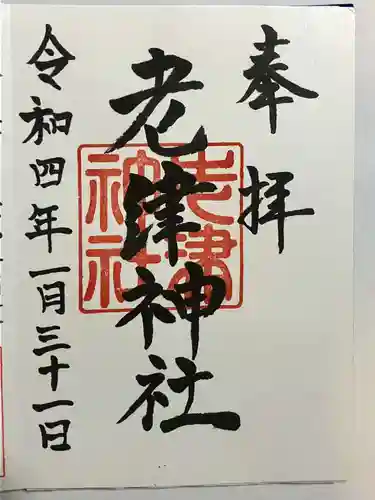 奉拝
老津神社
老津
神社
令和四年一月三十一日